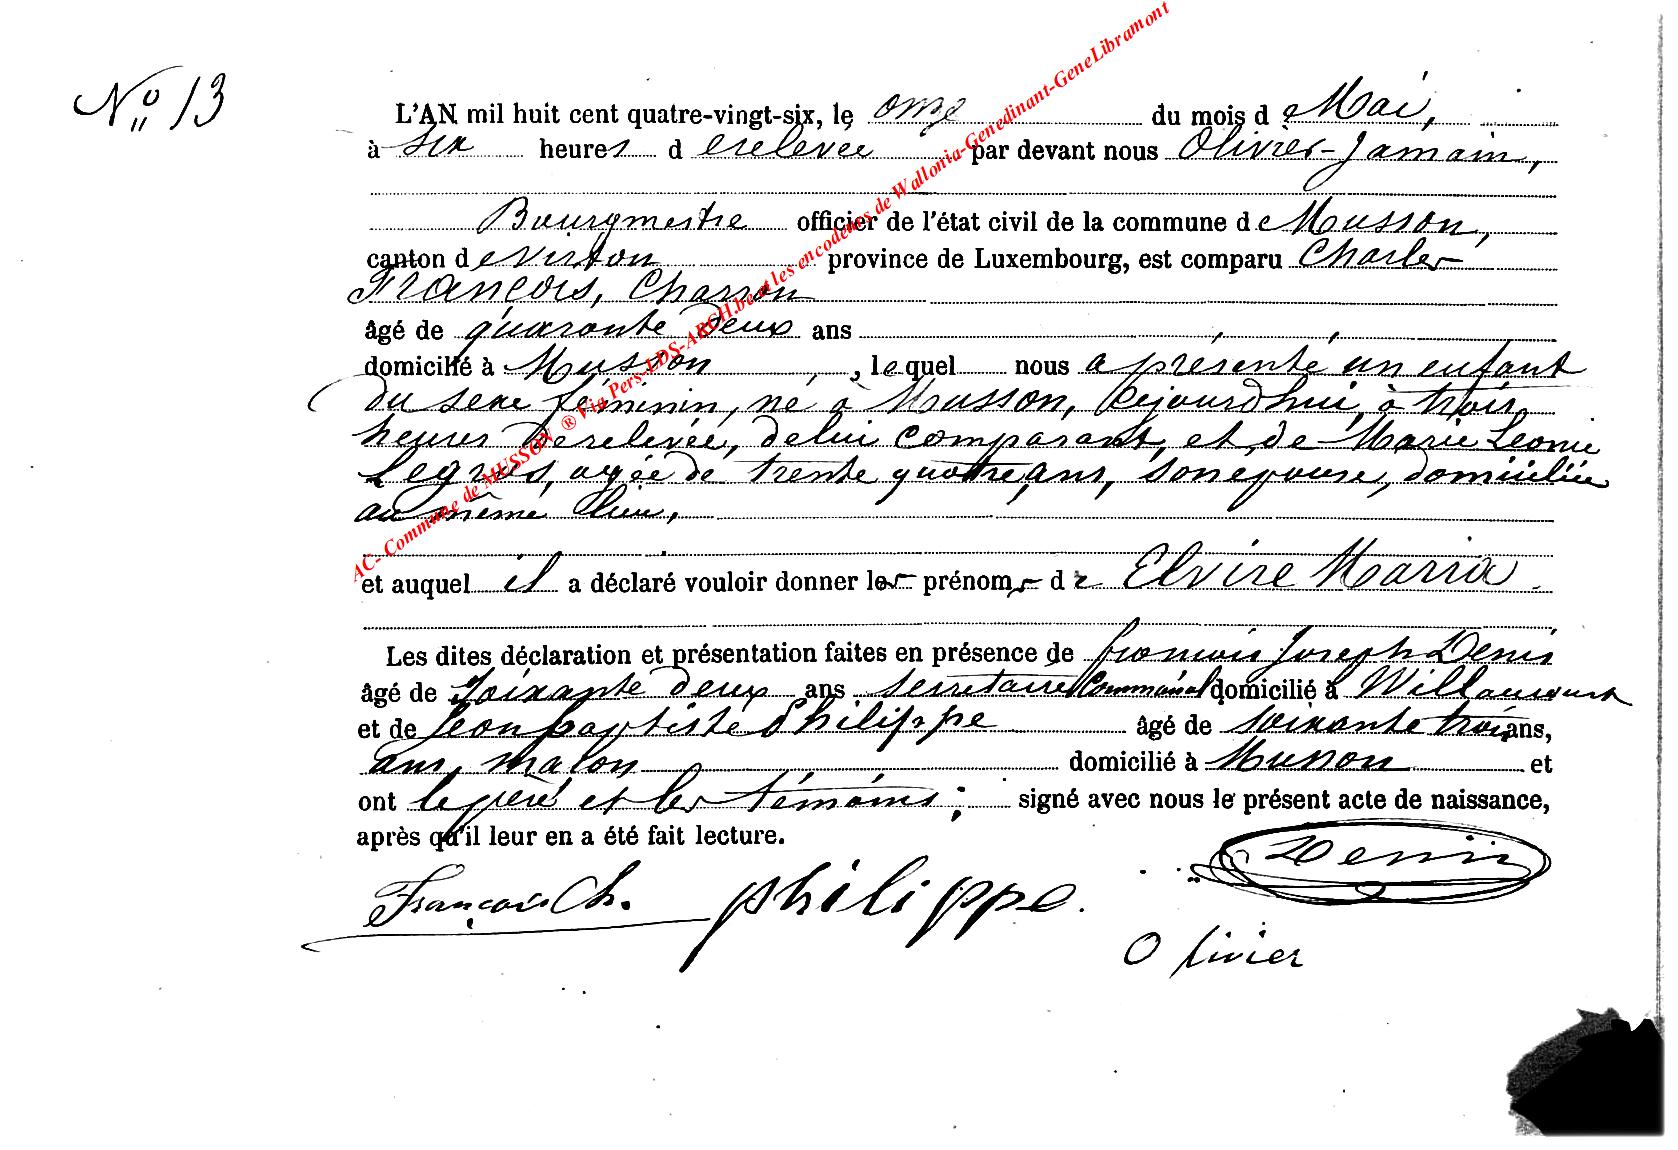 N° 13
L'AN mil huit cent quatre-vingt-six, le onze du mois de Mai,
à six heures derelevée par devant nous Olivier-Jamain,
Bourgmestre officier de l'état civil de la commune de Musson,
canton de Virton province de Luxembourg, est comparu Charles
François, Charron
âgé de quarante deux ans
domicilié à Musson, lequel nous a présenté un enfant
du sexe féminin, né à Musson, cejourd'hui, à trois
heures derelevée, delui comparant, et de Marie Leonie
Legros, agée de trente quatre ans, son epouse, domiciliée
au même lieu,
et auquel il a déclaré vouloir donner les prénoms de Elvire Maria
Les dites déclaration et présentation faites en présence de françois Joseph Denis
âgé de soixante deux ans secrétaire Communal domicilié à Willancourt
et de Jean baptiste Philippe âgé de soixante trois ans,
ans, maçon domicilié à Musson et
ont le père et les témoins; signé avec nous le présent acte de naissance,
après qu'il leur en a été fait lecture.
François Ch. philippe. Denis
Olivier
AC- Commune de MUSSON ® Via Pers-LDS-ARCH.be et les encodeurs de Wallonia-Genedinant-GeneLibramont